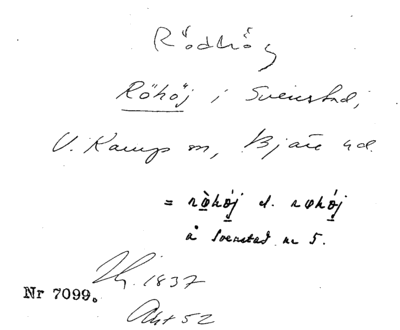 Rödhög
Röhöj i Svenstad,
V. Karup sn, Bjäre hd.
= rø̀höj el. røhöj
å Svenstad nr 5.
1837
Nr 7099.
Akt 52